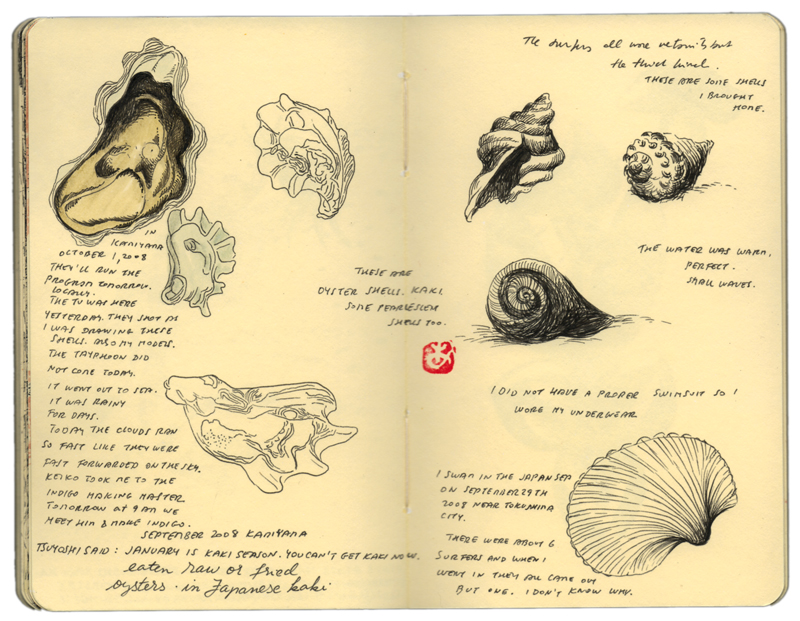 IN
KAMIYAMA
OCTOBER 1, 2008
THEY'LL RUN THE
PROGRAM TOMORROW.
LOCALLY.
THE TV WAS HERE
YESTERDAY. THEY SHOT AS
I WAS DRAWING THESE
SHELLS. ALSO MY MODELS.
THE TAYPHOON DID
NOT COME TODAY.
IT WENT OUT TO SEA.
IT WAS RAINY
FOR DAYS.
TODAY THE CLOUDS RAN
SO FAST LIKE THEY WERE
FAST FORWARDED ON THE SKY.
KEIKO TOOK ME TO THE
INDIGO MAKING MASTER
TOMORROW AT 9 AM WE
MEET HIM & MAKE INDIGO.
SEPTEMBER 2008 KAMIYAMA
TSUYOSHI SAID: JANUARY IS KAKI SEASON. YOU CAN'T GET KAKI NOW.
eaten raw or fried
oysters - in Japanese kaki
THESE ARE
OYSTER SHELLS. KAKI.
SOME PEARLESCEN
SHELLS TOO.
The surfers all wore wetsuits but
the third kind.
THESE ARE SOME SHELLS
I BROUGHT
HOME.
THE WATER WAS WARM.
PERFECT.
SMALL WAVES.
I DID NOT HAVE A PROPER SWIMSUIT SO I
WORE MY UNDERWEAR
I SWAM IN THE JAPAN SEA
ON SEPTEMBER 29TH
2008 NEAR TOKUSHIMA
CITY.
THERE WERE ABOUT 6
SURFERS AND WHEN I
WENT IN THEY ALL CAME OUT
BUT ONE. I DON'T KNOW WHY.